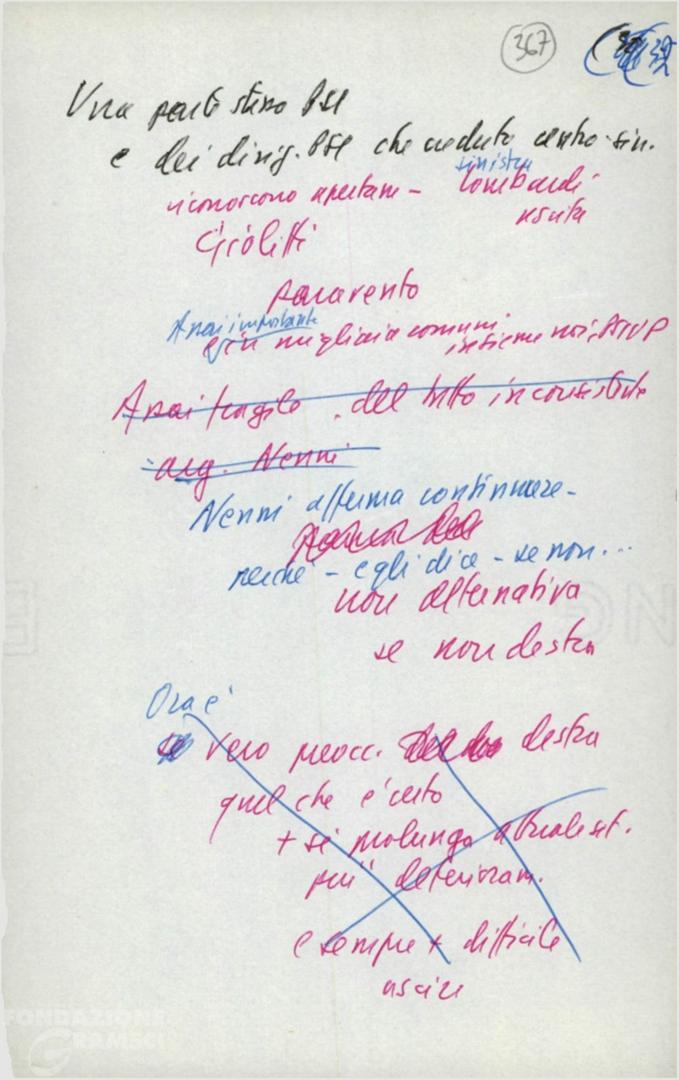 367
Una parte stesso PSI
e dei dirig. PSI che veduto centro-sin.
sinistra
riconoscono apertam - Lombardi
uscita
Giolitti
Paravento
Assai importante
già in migliaia comuni insieme noi, PSIUP
Assai fragile, del tutto inconsistente
arg. Nenni
Nenni afferma continuare -
perché - egli dice - se non...
non alternativa
se non destra
Ora è
vero preocc. destra
quel che è certo
+ si prolunga attuale sit.
più deterioram.
e sempre + difficile
uscire
FONDAZIONE
GRAMSCI